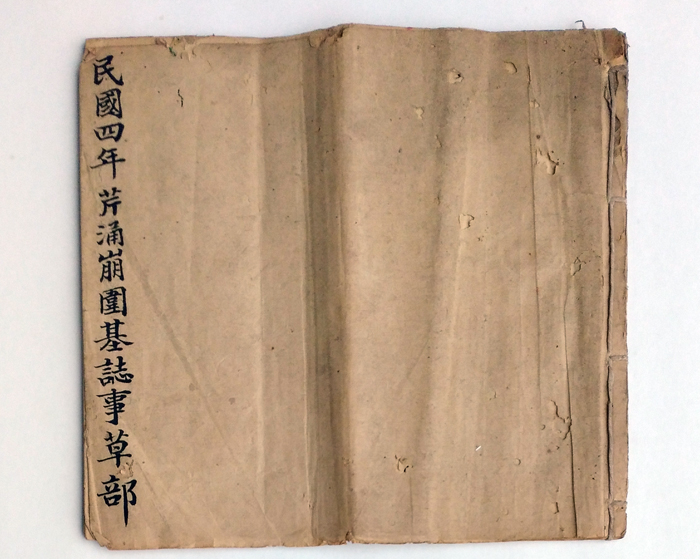 民國四年芹涌崩圍基誌事草部